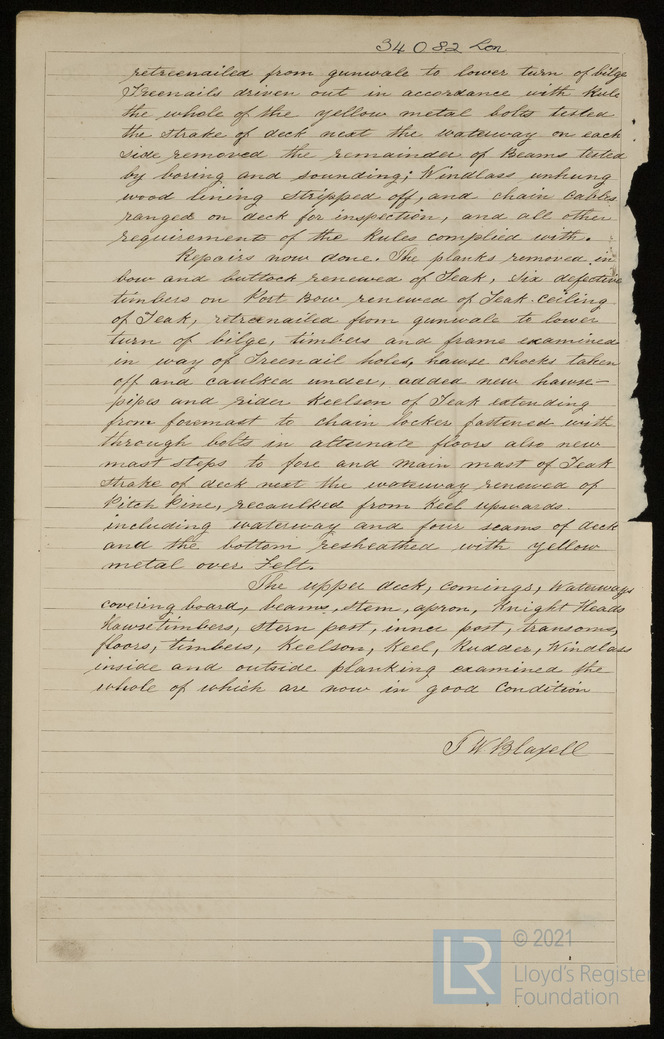 34082 Lon
retreenailed from gunwale to lower turn of bilge
Treenails driven out in accordance with Rule
the whole of the yellow metal bolts tested
the strake of deck next the waterway on each
side removed the remainder of Beams tested
by boring and sounding; Windlass unhung
wood lining stripped off, and chain cables
ranged on deck for inspection, and all other
requirements of the Rules complied with.
Repairs now done. The planks removed in
bow and buttock renewed of Teak, six defective
timbers on Port Bow renewed of Teak. Ceiling
of Teak, retreenailed from gunwale to lower
turn of bilge, timbers and frame examined
in way of Treenail holes, hawse chocks taken
off and caulked under, added new hawse-
pipes and rider Keelson of Teak extending
from foremast to chain locker fastened with
through bolts in alternate floors also new
mast steps to fore and main mast of Teak
Strake of deck next the waterway renewed of
Pitch Pine, recaulked from Keel upwards
including waterway and four seams of deck
and the bottom resheathed with yellow
metal over Felt.
The upper deck, comings, Waterways
covering board, beams, stem, apron, Knight Heads
Hawsetimbers, stern post, inner post, transoms,
floors, timbers, Keelson, Keel, Rudder, Windlass
inside and outside planking examined the
whole of which are now in good Condition
J W Blaxell
LR
© 2021
Lloyd's Register
Foundation